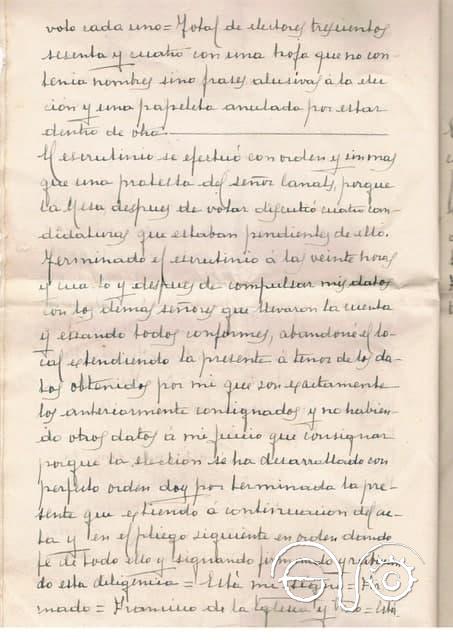 voto cada uno = Total de electores trescientos
sesenta y cuatro con una hoja que no con-
tenia nombres sino frases alusivas á la elec
ción y una papeleta anulada por estar
dentro de otra.
El escrutinio se efectuó con orden y sin mas
que una protesta del señor Canals, porque
la Mesa despues de votar discutió cuatro can-
didaturas que estaban pendientes de ello.
Terminado el escrutinio á las veinte horas
y cuarto y despues de compulsar mis datos
con los demas señores que llevaron la cuenta
y estando todos conformes, abandoné el lo-
cal extendiendo la presente á tenor de los da-
tos obtenidos por mi que son exactamente
los anteriormente consignados y no habien-
do otros datos á mi juicio que consignar
porque la elección se ha desarrollado con
perfecto orden doy por terminada la pre-
sente que extiendo á continuacion del ac-
ta y en el pliego siguiente en orden dando
fe de todo ello y signando firmando y
do esta diligencia = Está mi signo = Fir-
mado = Francisco de la Iglesia y = Está